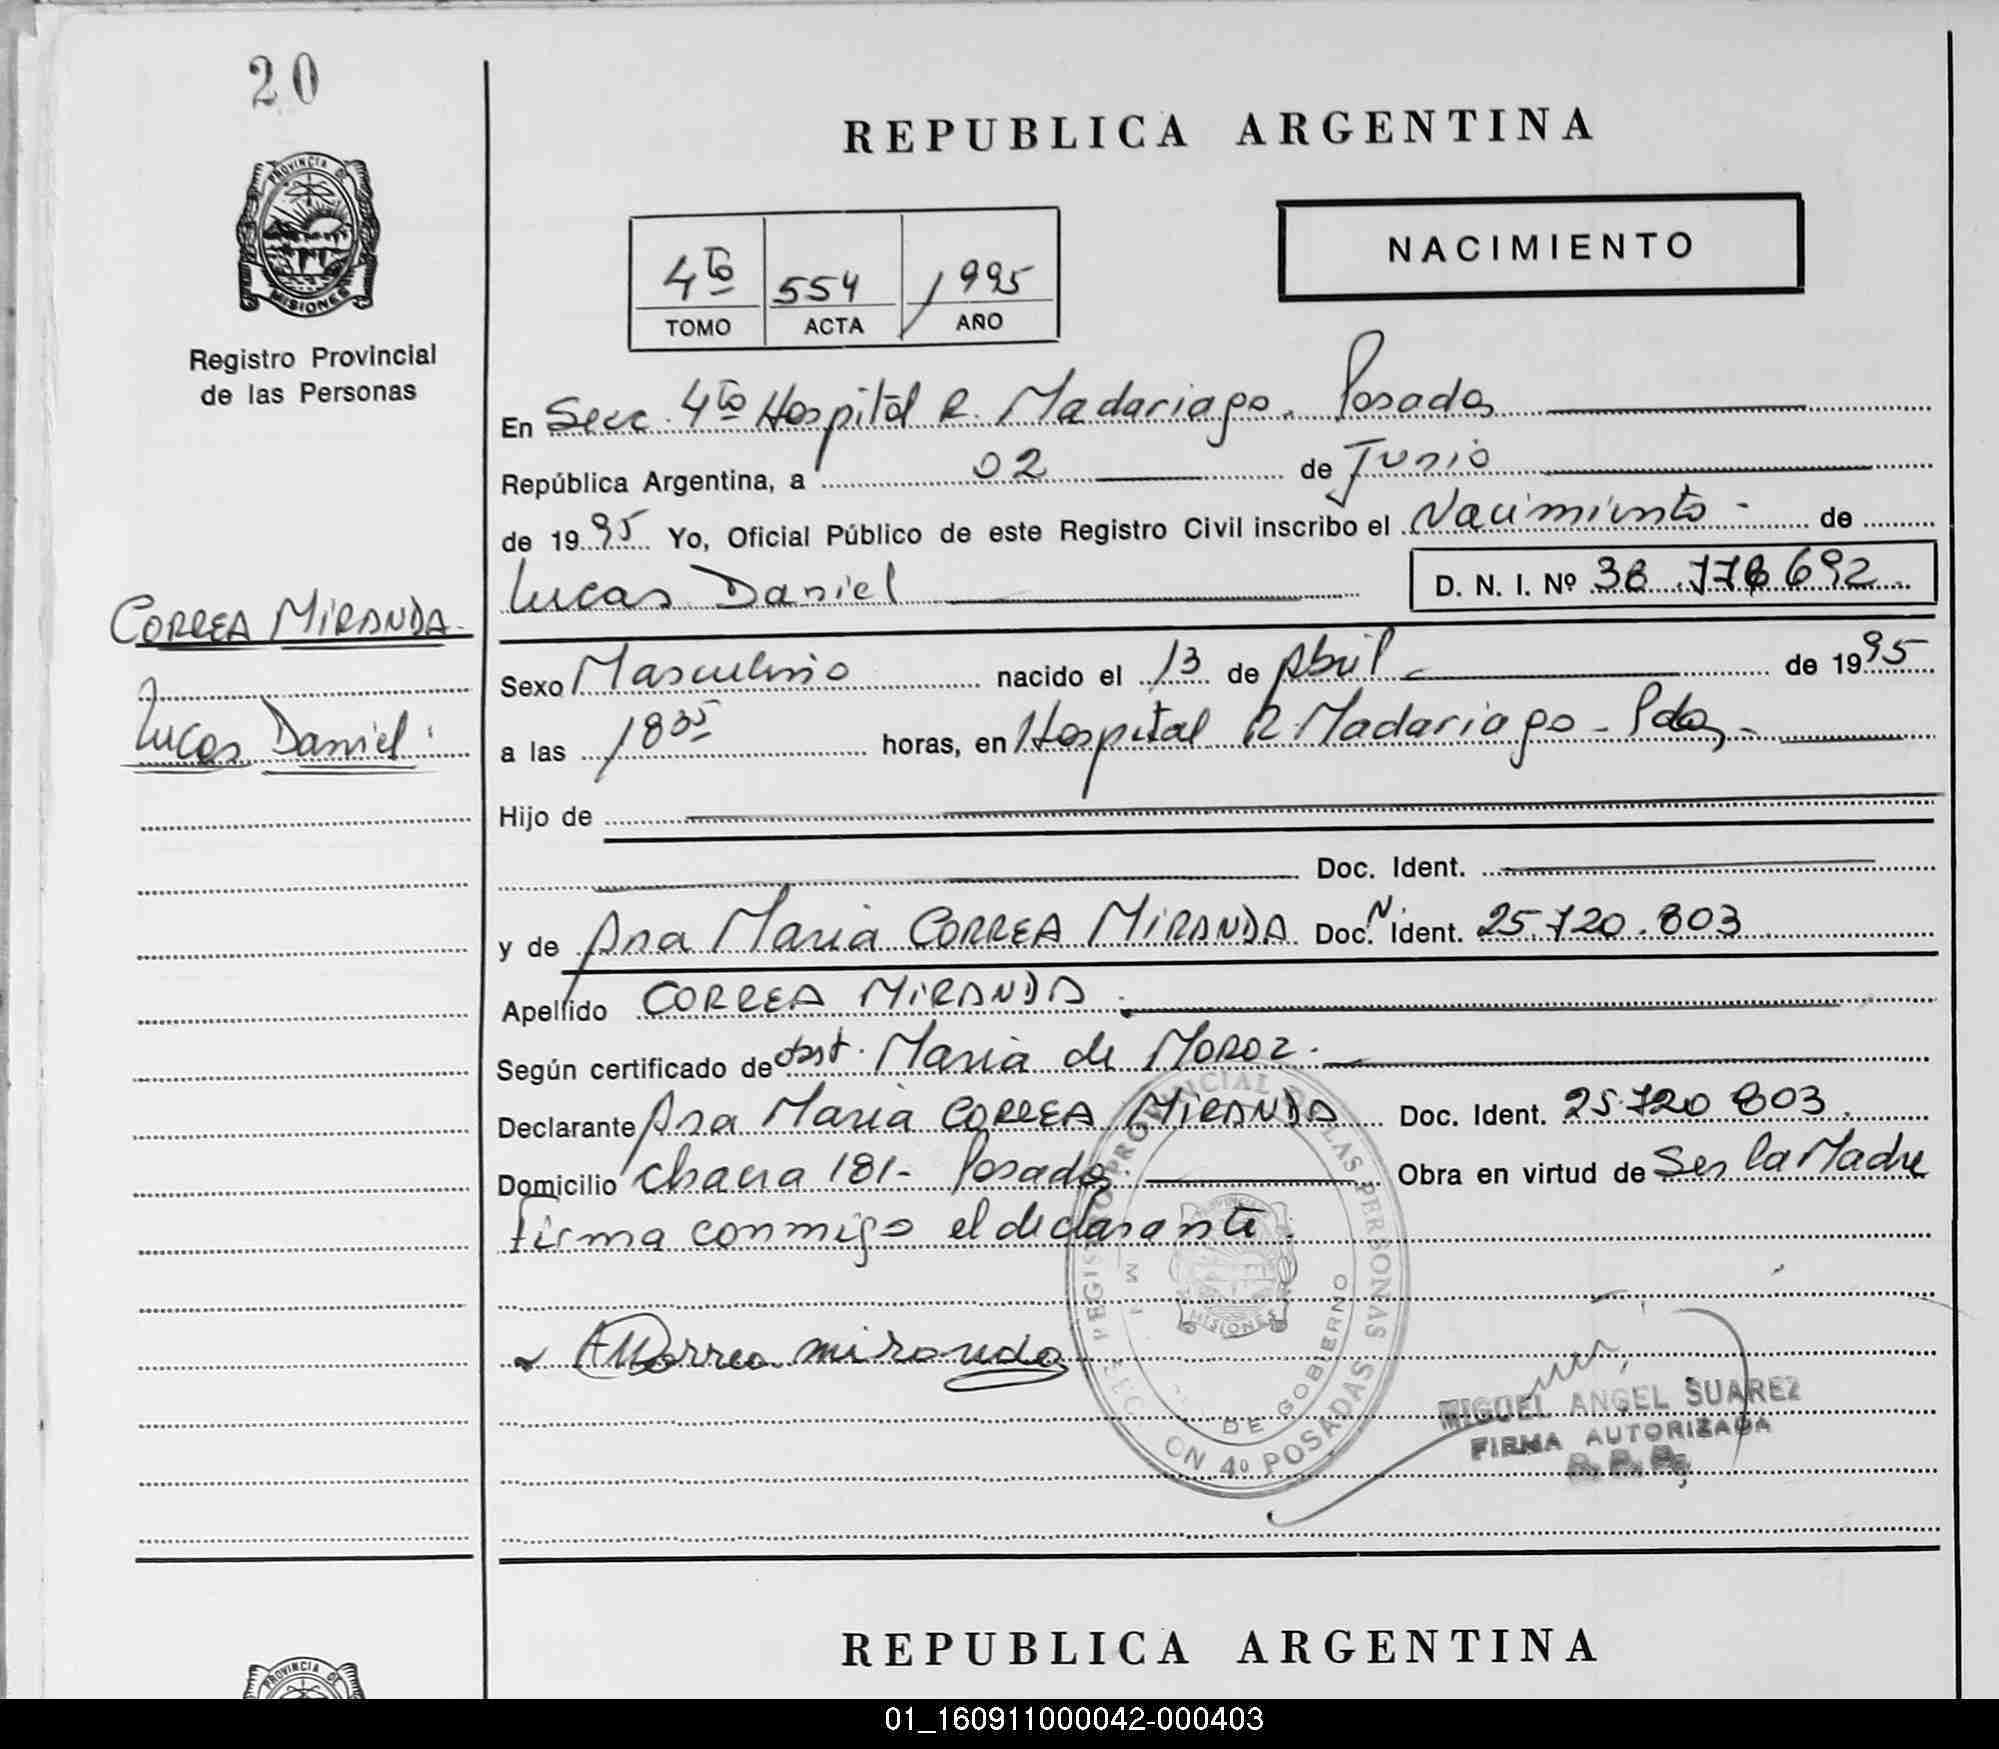 20
PROVINCIA DE
MISIONES
Registro Provincial
de las Personas
CORREA MIRANDA
Lucas Daniel
REPUBLICA ARGENTINA
NACIMIENTO
4to 554 1995
TOMO ACTA AÑO
En Secc. 4to Hospital R. Madariaga. Posadas
República Argentina, a 02 de Junio
de 1995 Yo, Oficial Público de este Registro Civil inscribo el Nacimiento - de
Lucas Daniel D. N. I. Nº
Sexo Masculino nacido el 13 de Abril de 1995
a las 1835 horas, en Hospital R. Madariaga - Pdas -
Hijo de
Doc. Ident.
y de Ana Maria CORREA MIRANDA Doc. N. Ident. 25.720.803
Apellido CORREA MIRANDA.
Según certificado de obst. Maria de Moroz.
Declarante Ana Maria CORREA MIRANDA Doc. Ident. 25.720 803.
Domicilio chacra 181 - Posadas. Obra en virtud de Ser la Madre
firma conmigo el declarante.
REGISTRO PROVINCIAL DE LAS PERSONAS
MISIONES
DE GOBIERNO
4º POSADAS
Correa miranda
MIGUEL ANGEL SUAREZ
FIRMA AUTORIZADA
R. P. P.
REPUBLICA ARGENTINA
PROVINCIA DE
01_160911000042-000403